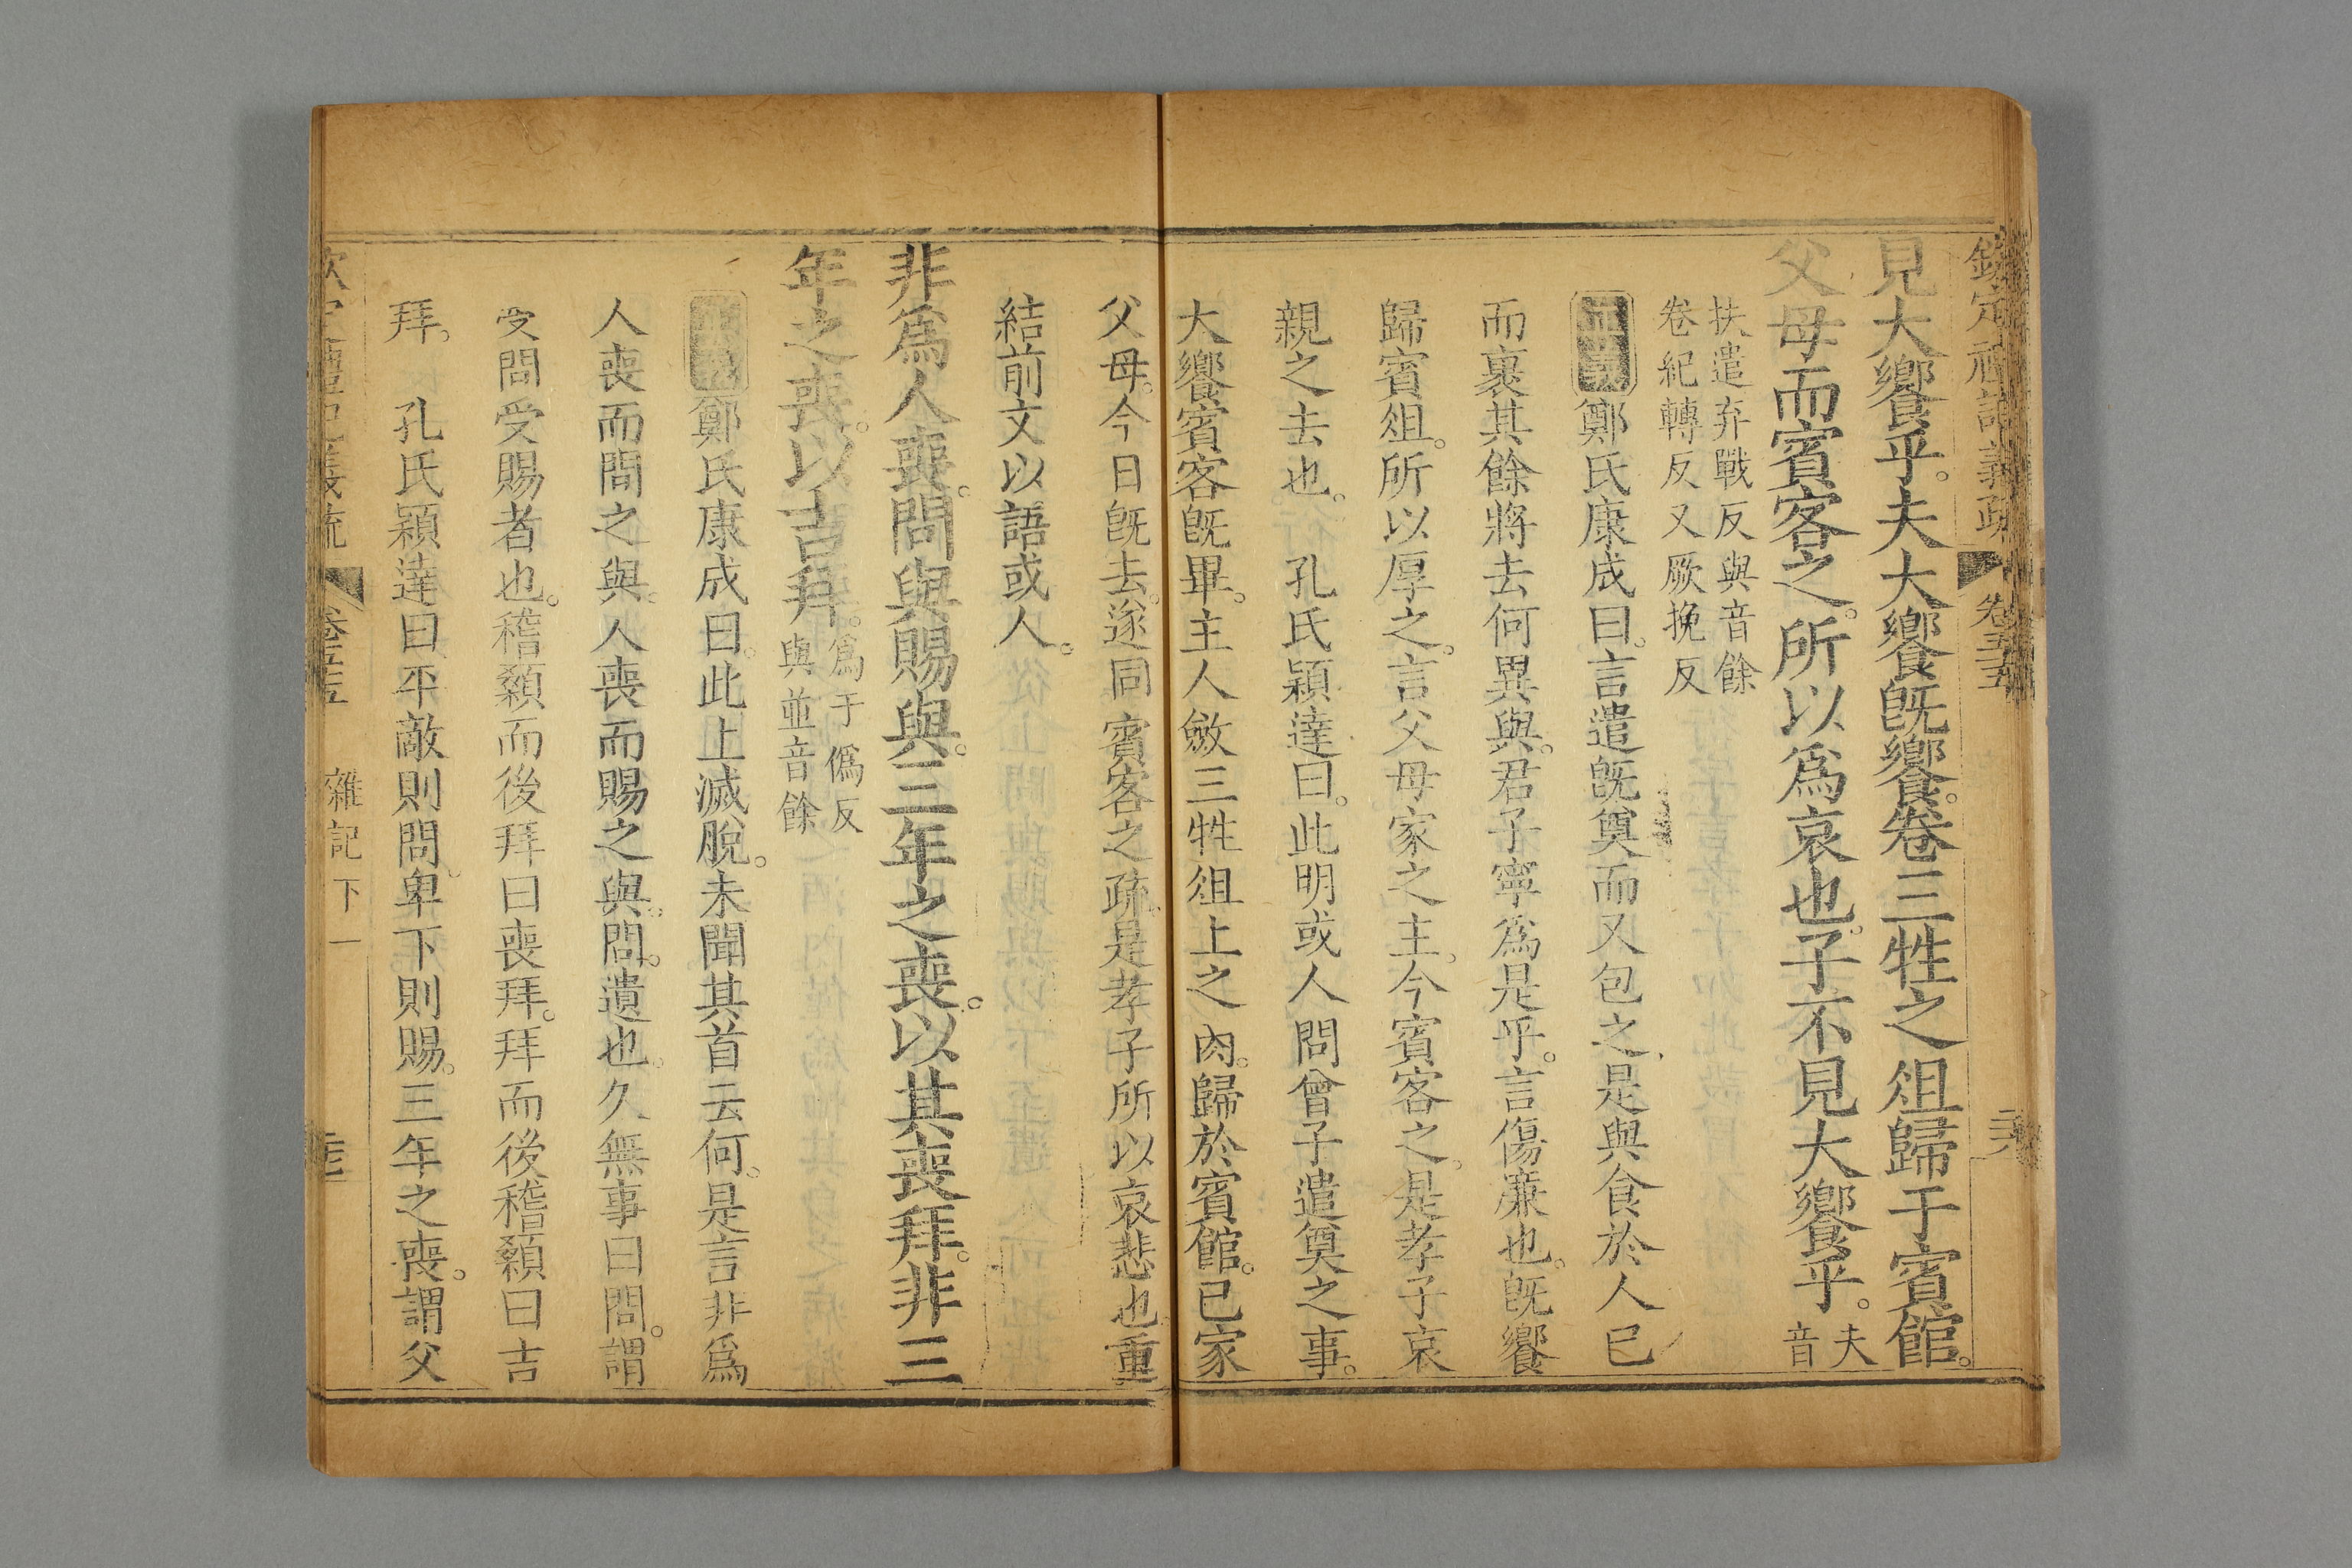 欽定禮記義疏 卷五十五
見大饗乎。夫大饗旣饗。卷三牲之俎歸于賓館。
父母而賓客之。所以爲哀也。子不見大饗乎。夫音
扶遣弃戰反與音餘
卷紀轉反又厥挽反
正義鄭氏康成曰。言遣旣奠而又包之是與食於人已
而裹其餘將去何異與。君子寧爲是乎。言傷廉也。旣饗
歸賓俎。所以厚之。言父母家之主。今賓客之。是孝子哀
親之去也。 孔氏穎達曰。此明或人問曾子遣奠之事。
大饗賓客旣畢。主人斂三牲俎上之肉。歸於賓館。已家
父母。今日旣去。遂同賓客之疏。是孝子所以哀悲也。重
結前文以語或人。
非爲人喪。問與賜與。三年之喪。以其喪拜。非三
年之喪。以吉拜。爲于僞反
與並音餘
鄭氏康成曰。此上滅脫。未聞其首云何。是言非爲
人喪而問之與。人喪而賜之與。問。遺也。久無事曰問。謂
受問受賜者也。稽顙而後拜曰喪拜。拜而後稽顙曰吉
拜。 孔氏穎達曰平敵則問。卑下則賜。三年之喪。謂父
雜記下一